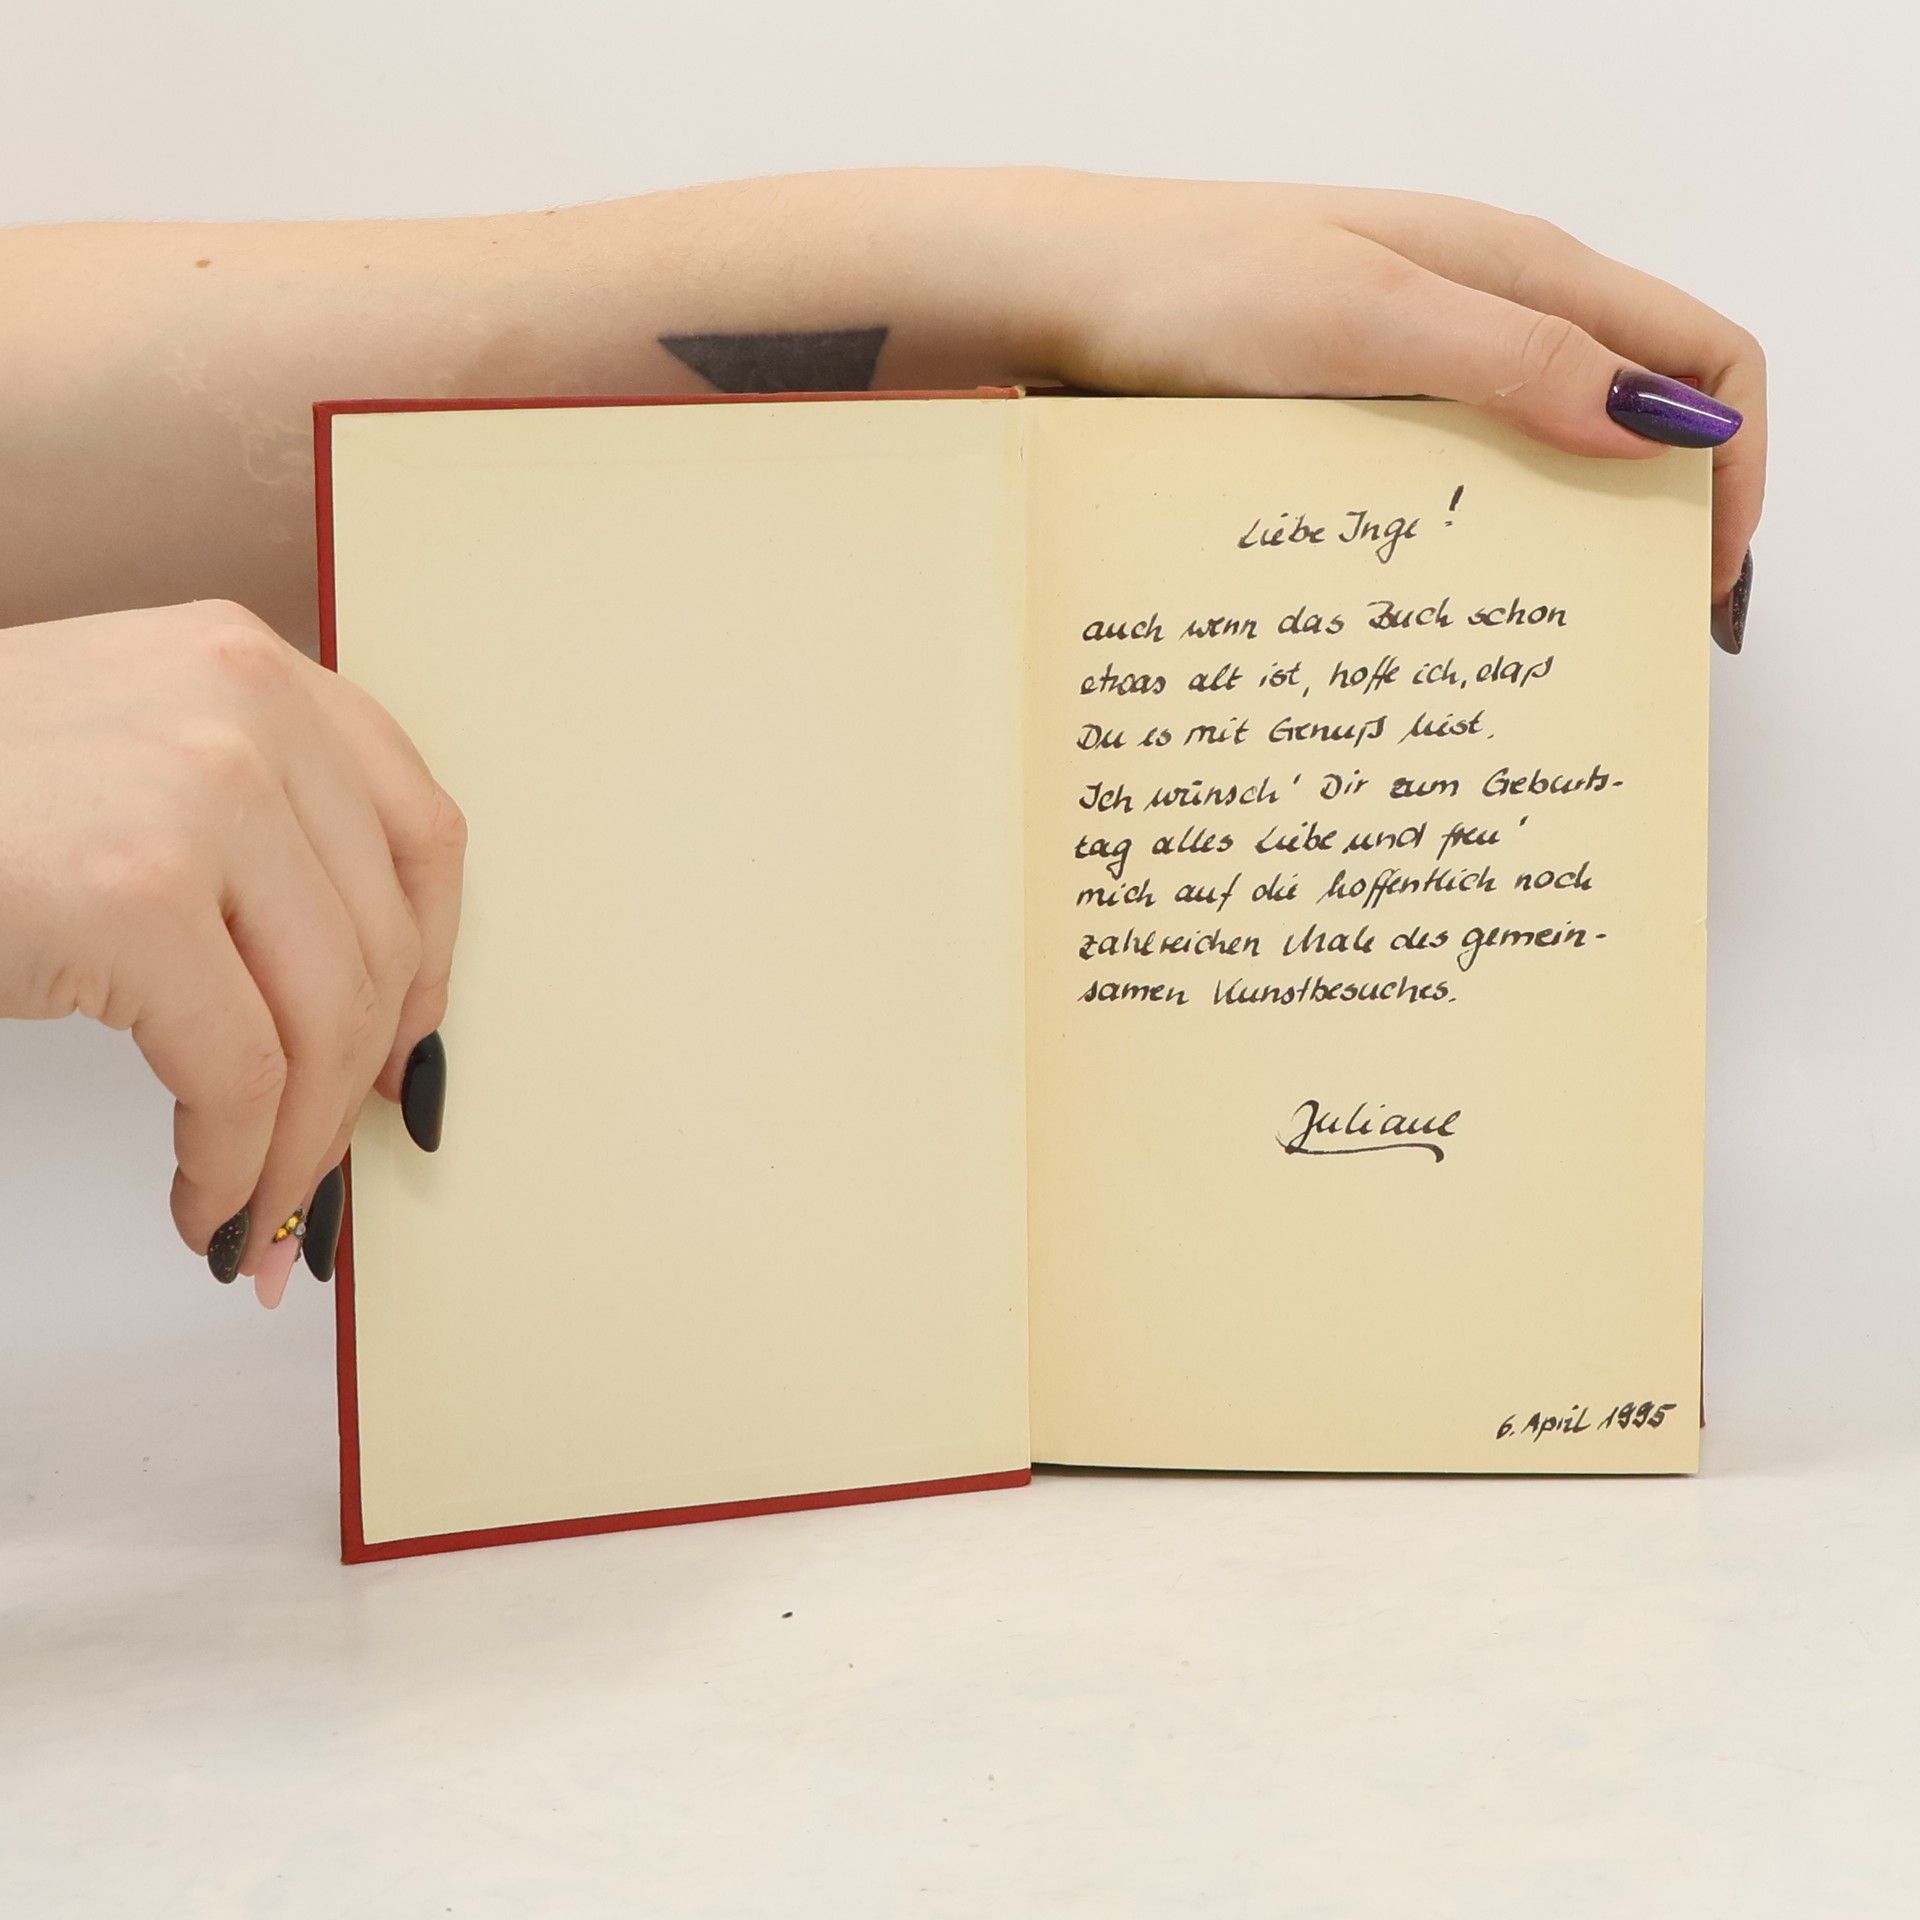 Liebe Inge!
auch wenn das Buch schon
etwas alt ist, hoffe ich, daß
Du es mit Genuß liest.
Ich wünsch' Dir zum Geburts-
tag alles Liebe und freu'
mich auf die hoffentlich noch
zahlreichen Male des gemein-
samen Kunstbesuches.
Juliane
6. April 1995